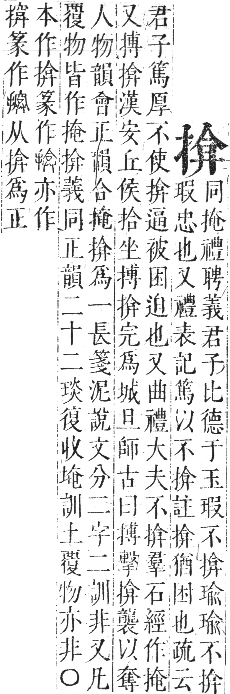 揜
同掩禮聘義君子比德于玉瑕不揜瑜瑜不揜
瑕忠也又禮表記篤以不揜註揜猶困也疏云
君子篤厚不使揜逼被困迫也又曲禮大夫不揜羣石經作掩
又搏揜漢安丘侯拾坐搏揜完爲城旦師古曰搏擊揜襲以奪
人物韻會正韻合掩揜爲一長箋泥說文分二字二訓非又凡
覆物皆作掩揜義同正韻二十二琰復收埯訓土覆物亦非○
本作揜篆作亦作
篆作从揜爲正